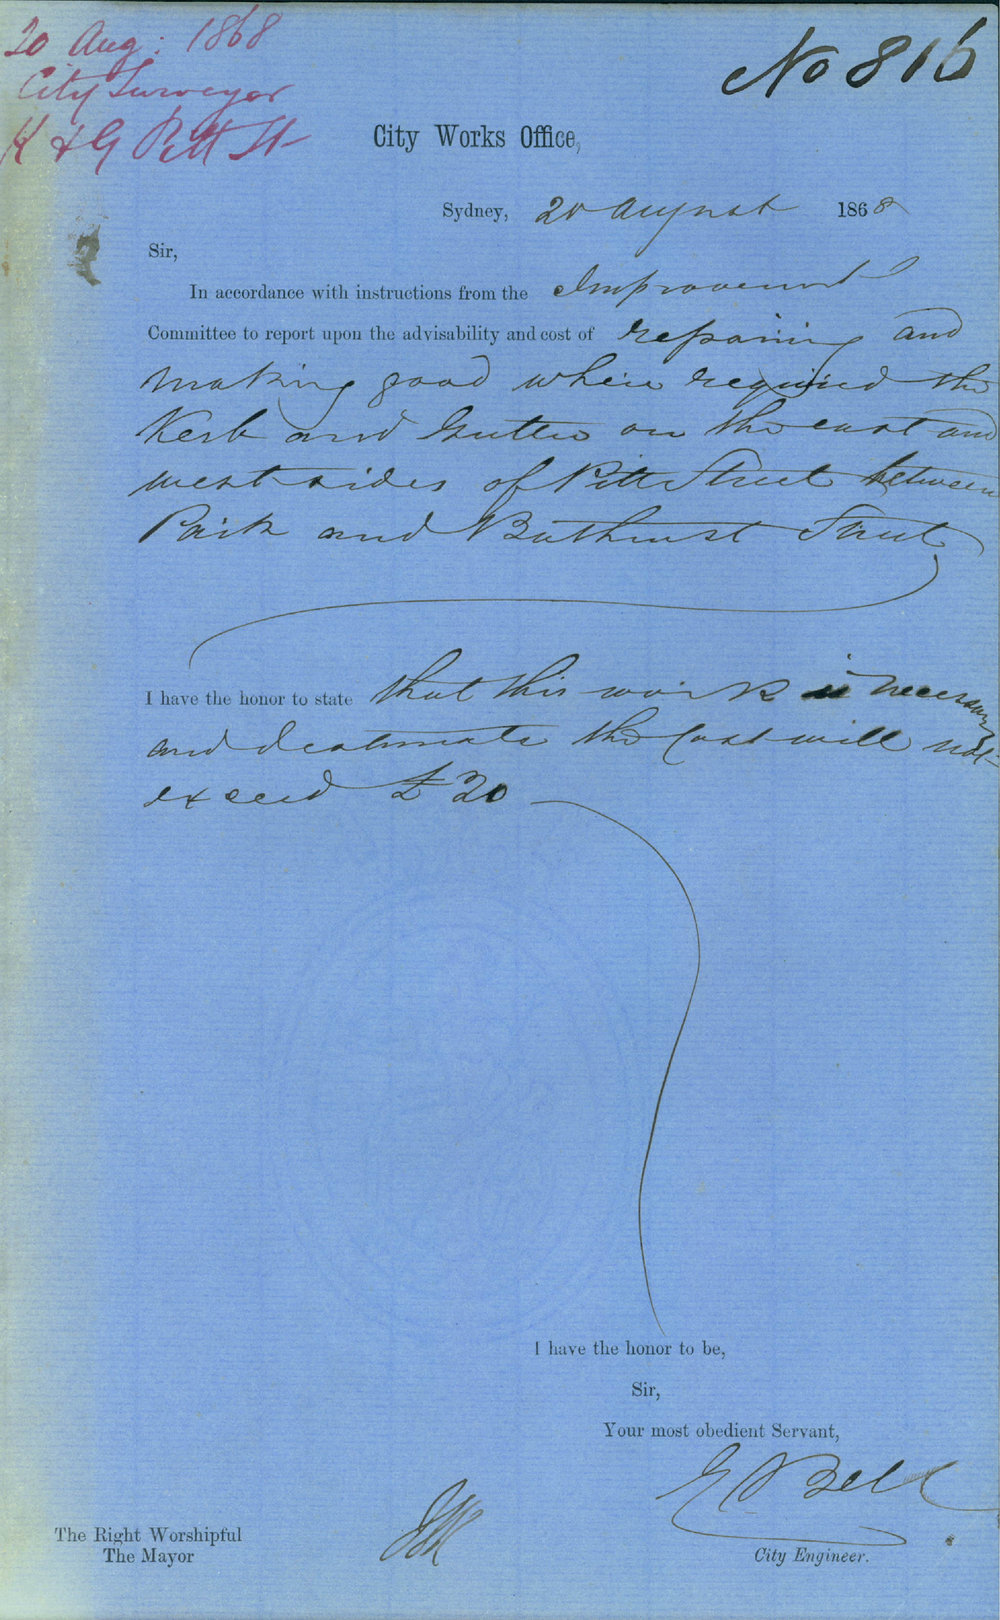 20 Aug: 1868
City Surveyor
K & G Pitt St
No 816
City Works Office,
Sydney, 20 August 1868
Sir,
In accordance with instructions from the Improvement
Committee to report upon the advisability and cost of repairing and
making good where required the
Kerb and Gutter on the east and
west sides of Pitt Street between
Park and Bathurst Street
I have the honor to state that this work is necessary
and I estimate the Cost will not
exceed £20
I have the honor to be,
Sir,
Your most obedient Servant,
E Bell
The Right Worshipful
The Mayor
City Engineer.